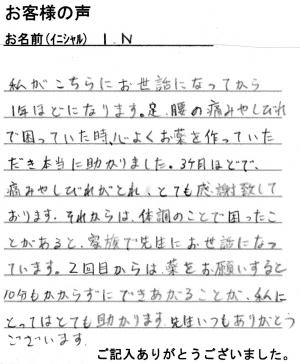 お客様の声
お名前(イニシャル) I.N
私がこちらにお世話になってから
1年ほどになります。足、腰の痛みやしびれ
で困っていた時、心よくお薬を作っていた
だき本当に助かりました。3ヶ月ほどで、
痛みやしびれがとれ、とても感謝致して
おります。それからは、体調のことで困ったこ
とがあると、家族で先生にお世話になっ
ています。2回目からは、薬をお願いすると
10分もかからずにできあがることが、私に
とってはとても助かります。先生いつもありがとう
ございます。
ご記入ありがとうございました。